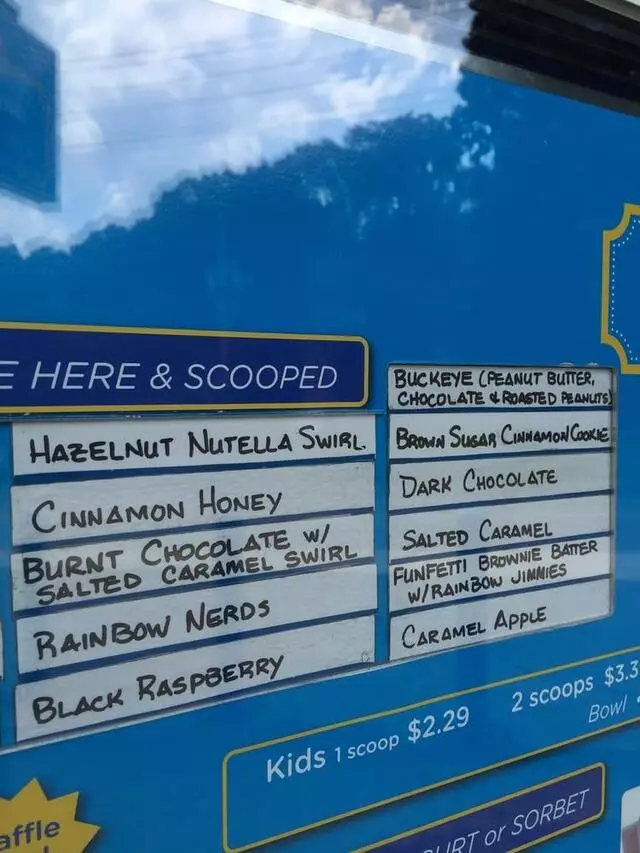 HERE & SCOOPED
HAZELNUT NUTELLA SWIRL
CINNAMON HONEY
BURNT CHOCOLATE W/
SALTED CARAMEL SWIRL
RAINBOW NERDS
BLACK RASPBERRY
BUCKEYE (PEANUT BUTTER,
CHOCOLATE & ROASTED PEANUTS)
BROWN SUGAR CINNAMON COOKIE
DARK CHOCOLATE
SALTED CARAMEL
FUNFETTI BROWNIE BATTER
W/RAINBOW JIMMIES
CARAMEL APPLE
Kids 1 scoop $2.29
2 scoops $3.3
Bowl
or SORBET